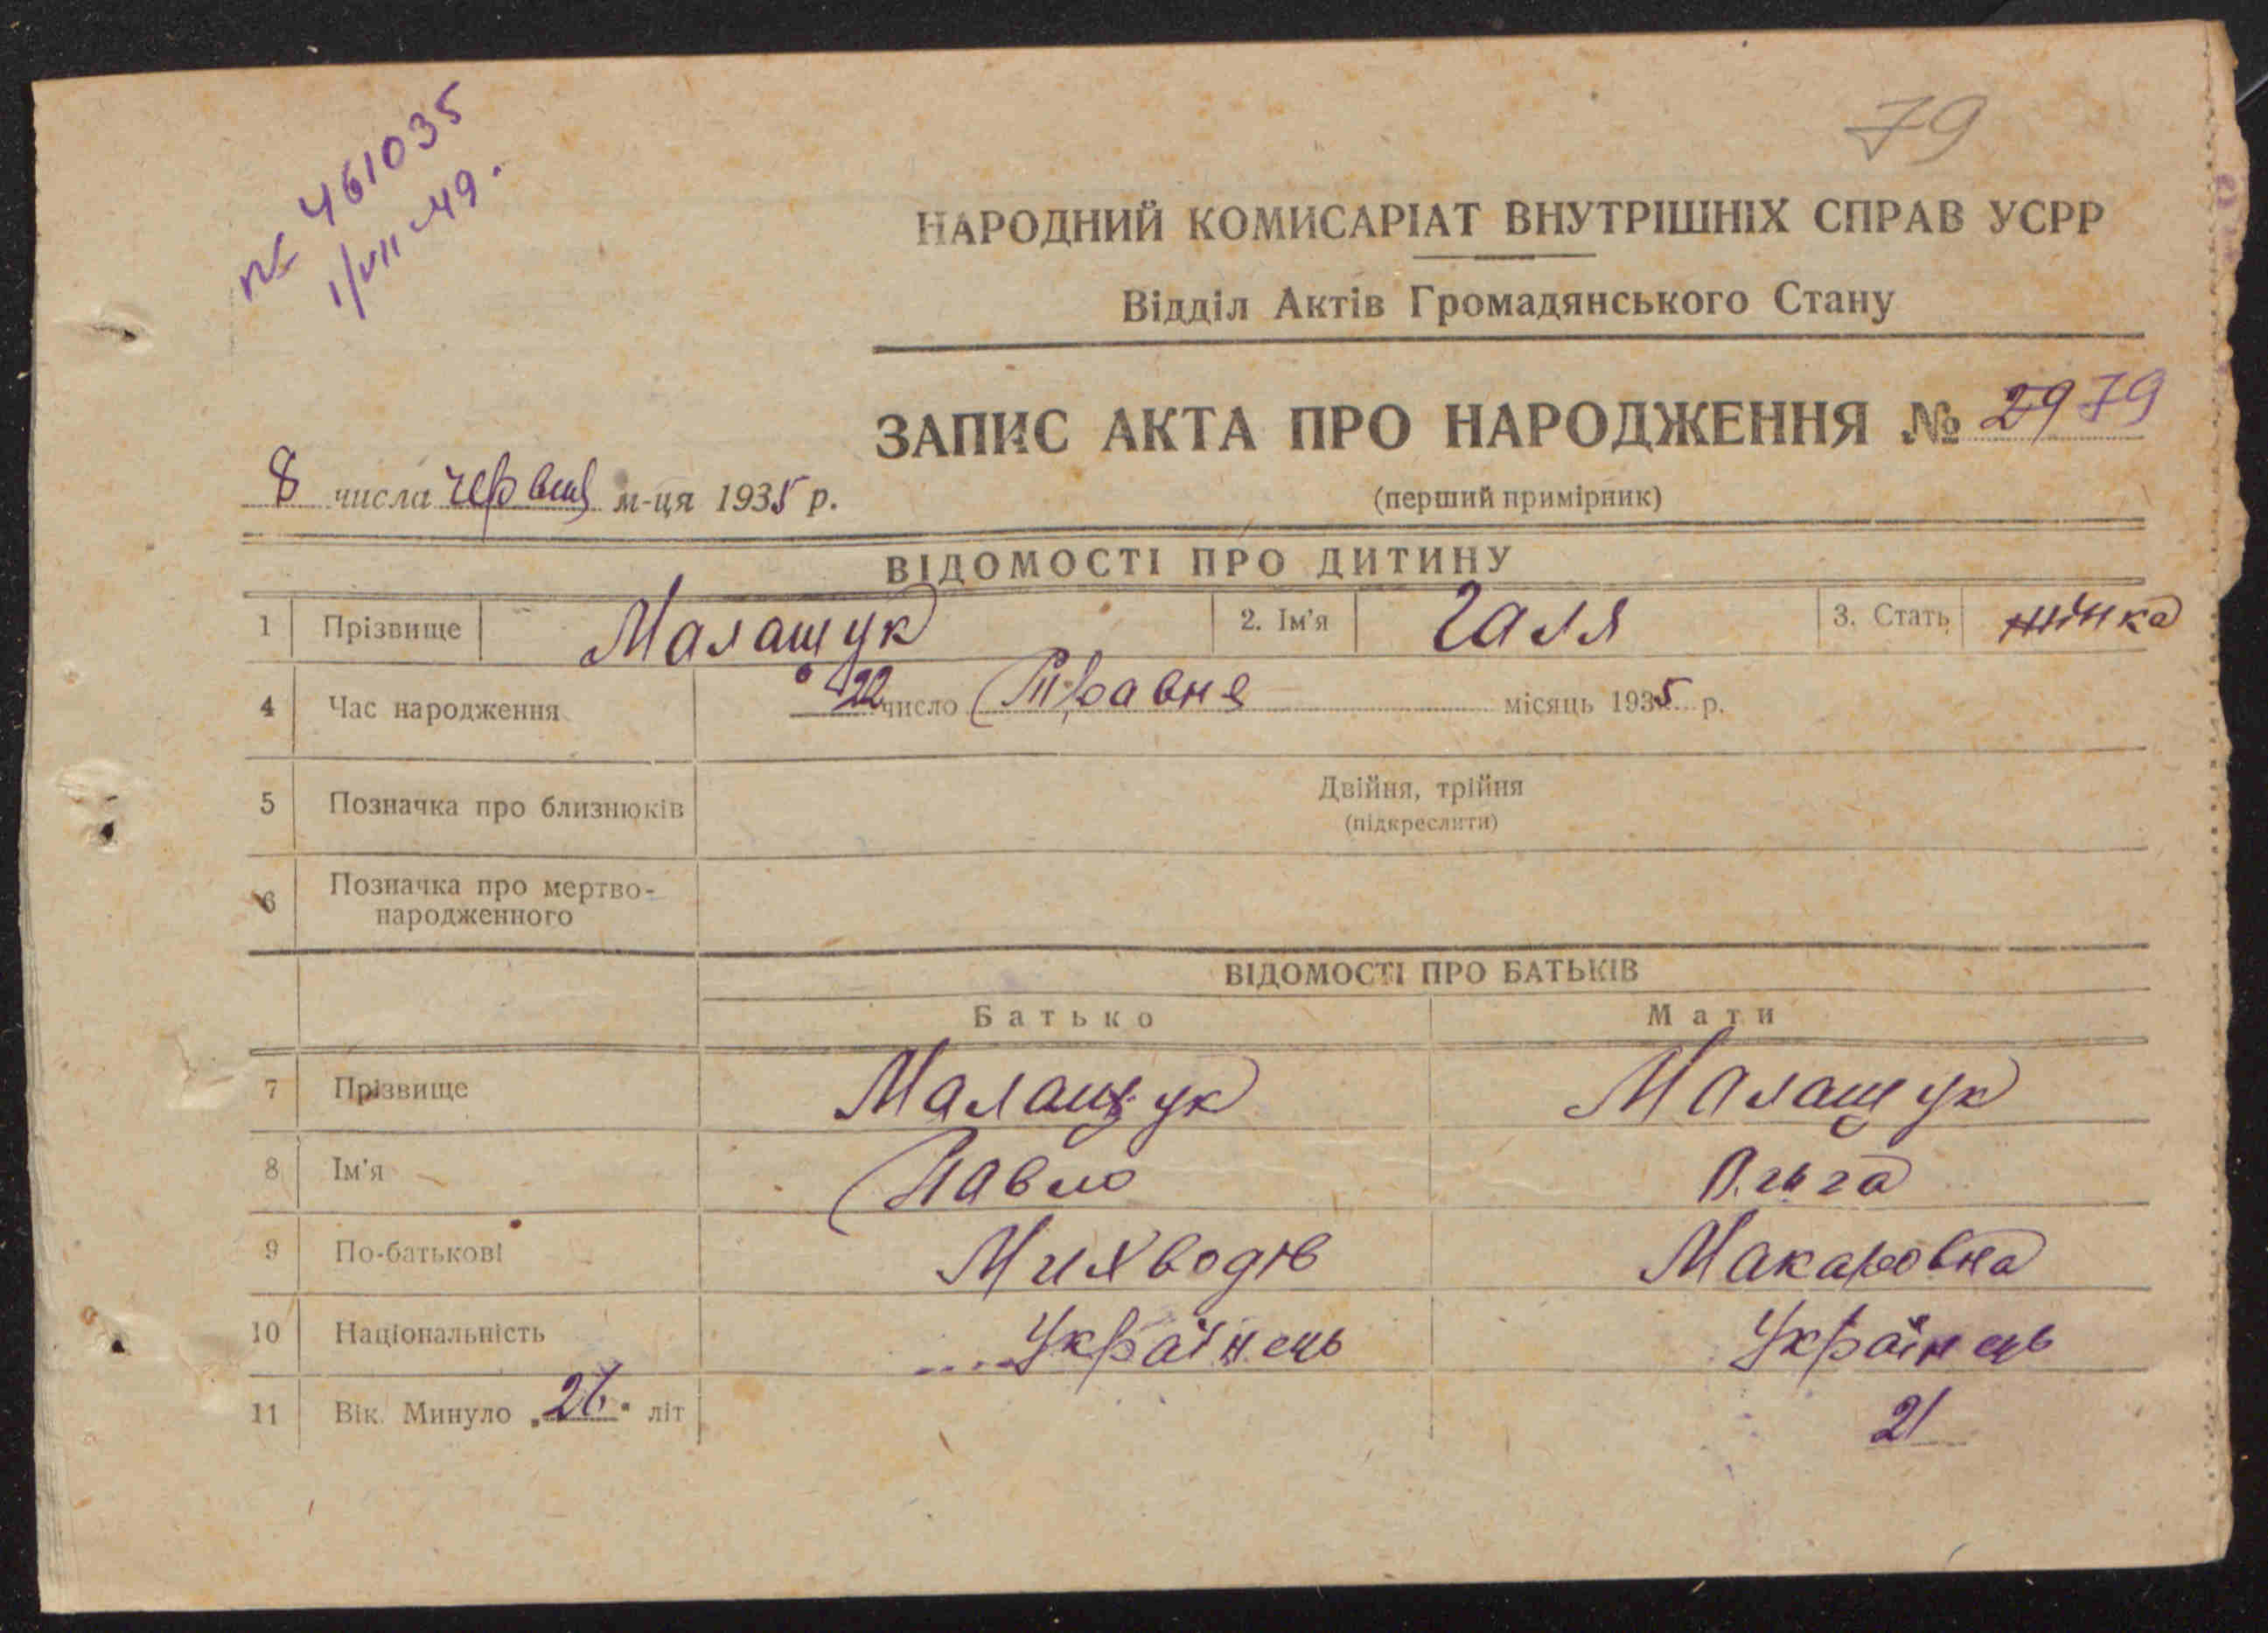 № 461035
1/VII-49.
79
НАРОДНИЙ КОМИСАРІАТ ВНУТРІШНІХ СПРАВ УСРР
Відділ Актів Громадянського Стану
ЗАПИС АКТА ПРО НАРОДЖЕННЯ № 2979
8 числа червня м-ця 1935 р.
(перший примірник)
ВІДОМОСТІ ПРО ДИТИНУ
1 Прізвище Малащук 2. Ім'я Галя 3. Стать жінка
4 Час народження 22 число Травня місяць 1935 р.
5 Позначка про близнюків Двійня, трійня
(підкреслити)
6 Позначка про мертво-
народженного
ВІДОМОСТІ ПРО БАТЬКІВ
Батько Мати
7 Прізвище Малащук Малащук
8 Ім'я Павло Ольга
9 По-батькові Макаровна
10 Національність Українець Українець
11 Вік. Минуло 26 літ 21